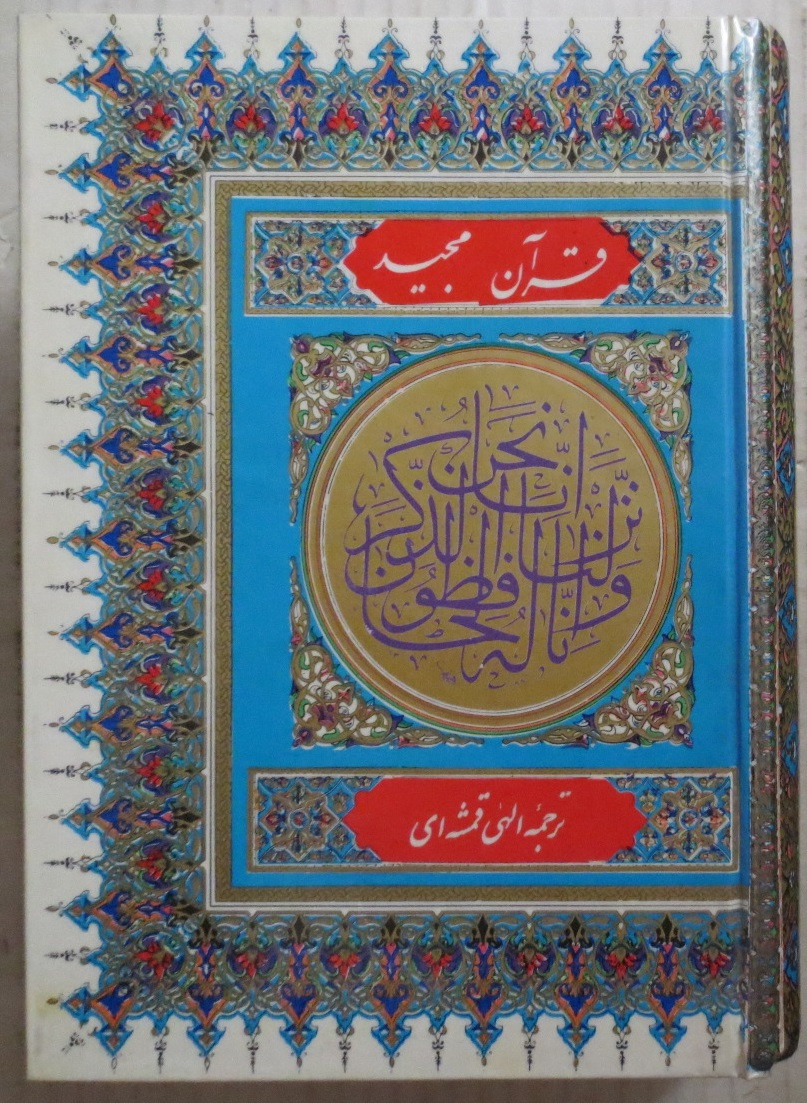 قرآن مجید
انا نحن نزلنا الذکر و انا له لحافظون
ترجمهٔ الهی قمشه ای